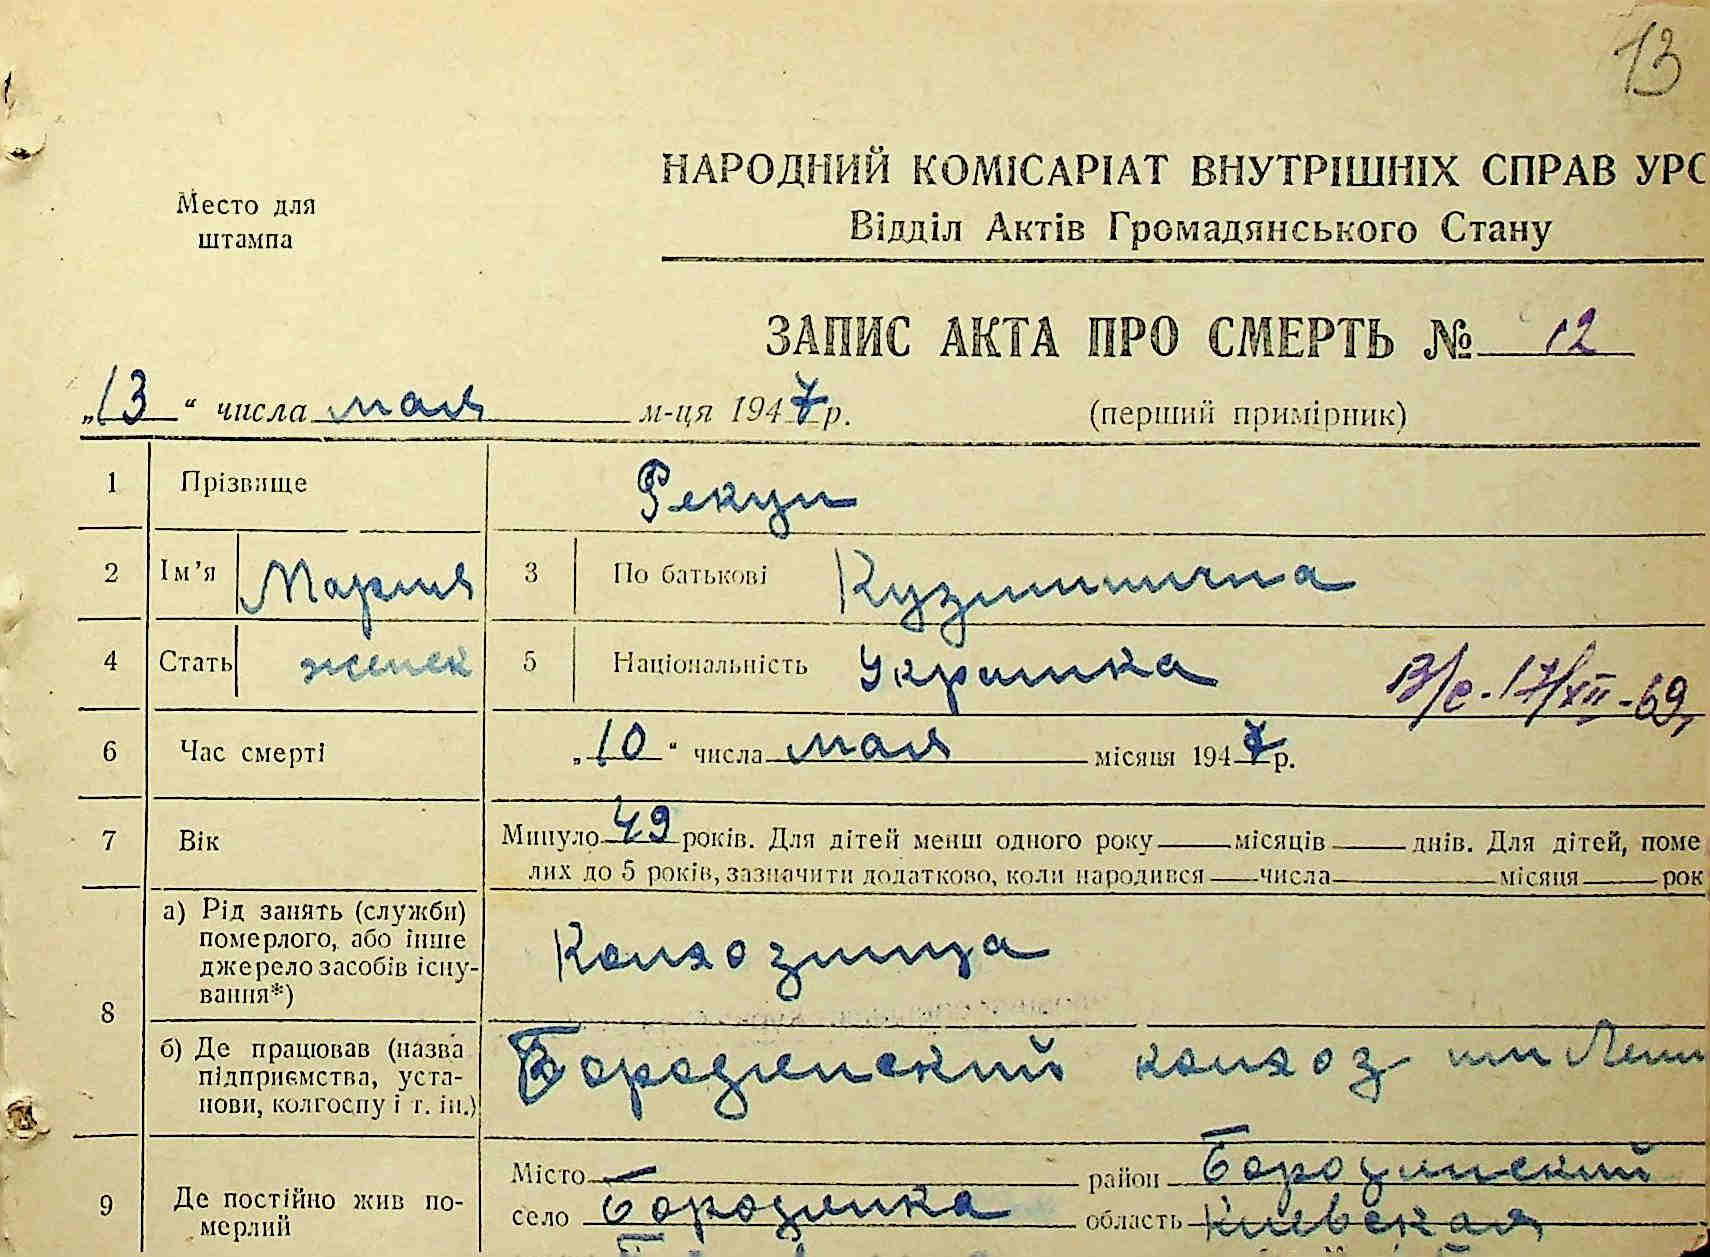 13
НАРОДНИЙ КОМІСАРІАТ ВНУТРІШНІХ СПРАВ УРС
Место для
штампа
Відділ Актів Громадянського Стану
ЗАПИС АКТА ПРО СМЕРТЬ № 12
„13“ числа мая м-ця 1947 р. (перший примірник)
1 Прізвище Рекун
2 Ім’я Мария 3 По батькові Кузминична
4 Стать женск 5 Національність Украинка
В/с - 17/XII - 69
6 Час смерті „10“ числа мая місяця 1947 р.
7 Вік Минуло 49 років. Для дітей менш одного року місяців днів. Для дітей, поме
лих до 5 років, зазначити додатково, коли народився числа місяця рок
8 а) Рід занять (служби)
померлого, або інше
джерело засобів існу-
вання*)
Колхозница
б) Де працював (назва
підприємства, уста-
нови, колгоспу і т. ін.)
Бородянский колхоз им Лени
9 Де постійно жив по-
мерлий
Місто район Бородянский
село Бородянка область Киевская